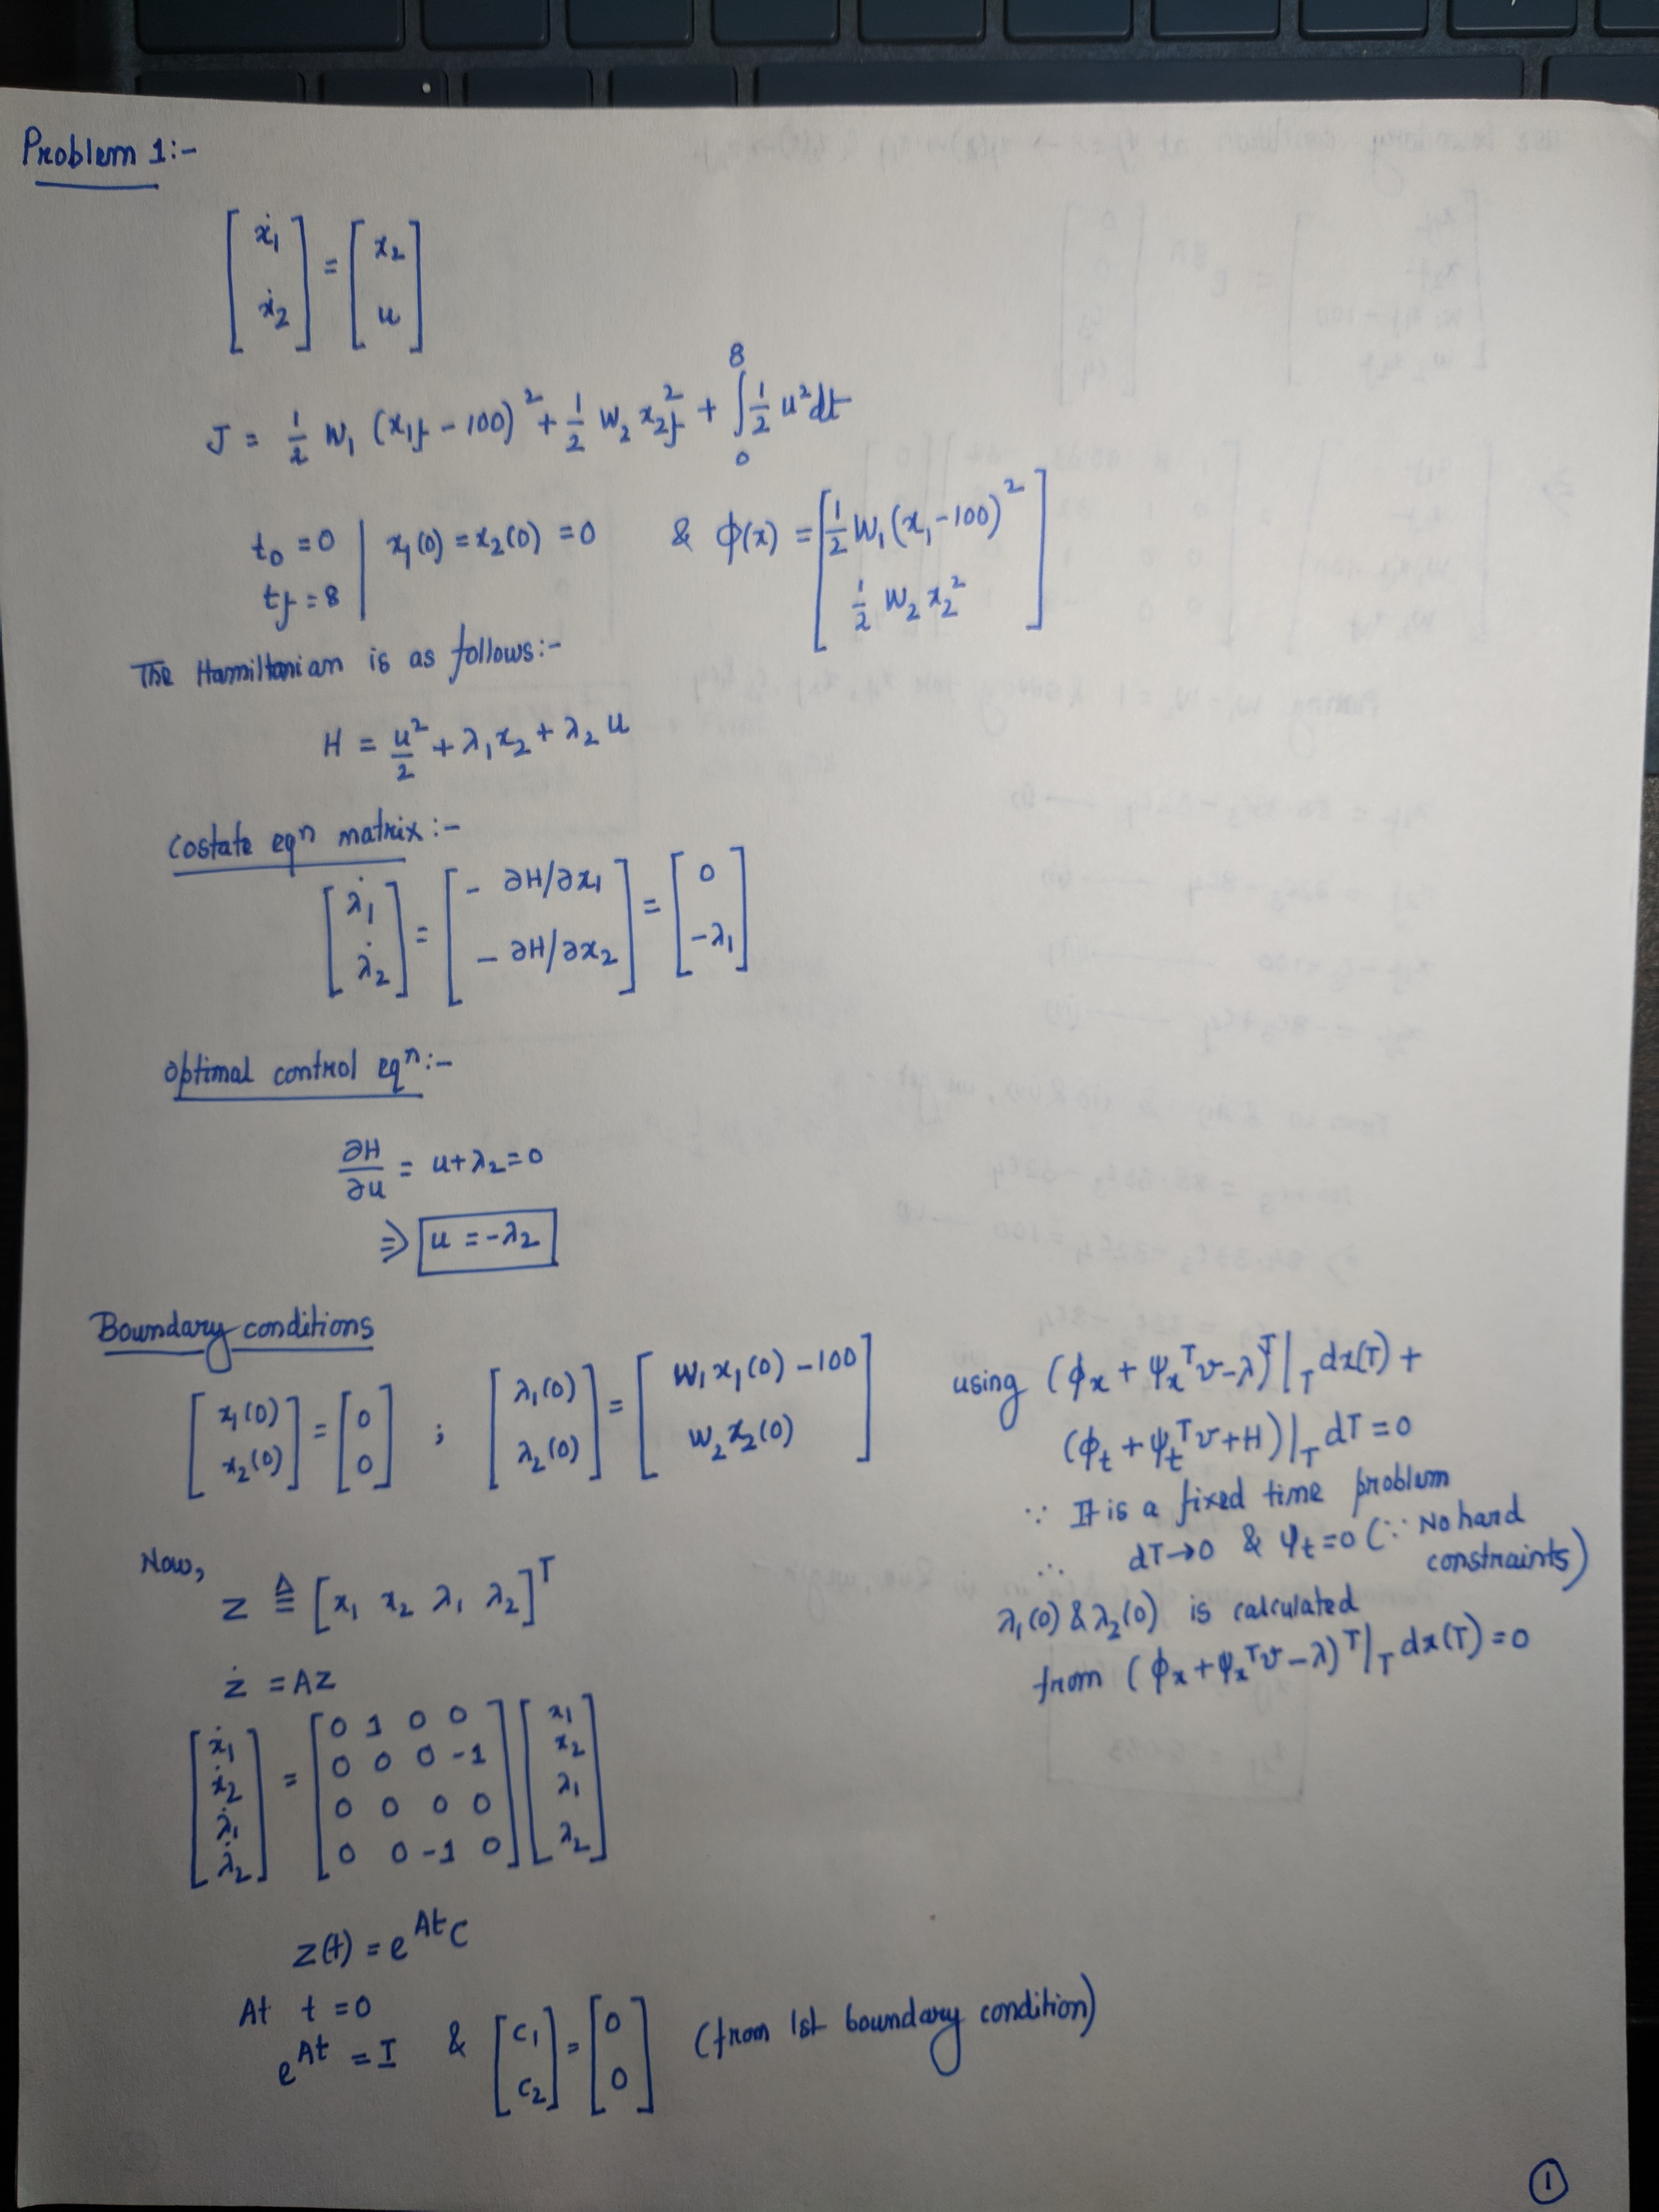 Problem 1:-
[ẋ1; ẋ2] = [x2; u]
J = 1/2 W1 (x1f - 100)² + 1/2 W2 x2f² + ∫₀⁸ 1/2 u² dt
t0 = 0 | x1(0) = x2(0) = 0 & ϕ(x) = [1/2 W1 (x1 - 100)²; 1/2 W2 x2²]
tf = 8
The Hamiltonian is as follows:-
H = u²/2 + λ1 x2 + λ2 u
Costate eqⁿ matrix:-
[λ̇1; λ̇2] = [- ∂H/∂x1; - ∂H/∂x2] = [0; -λ1]
Optimal control eqⁿ:-
∂H/∂u = u + λ2 = 0
⇒ u = -λ2
Boundary conditions
[x1(0); x2(0)] = [0; 0] ; [λ1(0); λ2(0)] = [W1 x1(0) - 100; W2 x2(0)]
using (ϕx + ψxᵀν - λ)ᵀ|T dx(T) +
(ϕt + ψtᵀν + H)|T dT = 0
∵ It is a fixed time problem
∴ dT → 0 & ψt = 0 (∵ No hard constraints)
λ1(0) & λ2(0) is calculated
from (ϕx + ψxᵀν - λ)ᵀ|T dx(T) = 0
Now,
Z ≜ [x1 x2 λ1 λ2]ᵀ
ż = AZ
[ẋ1; ẋ2; λ̇1; λ̇2] = [0 1 0 0; 0 0 0 -1; 0 0 0 0; 0 0 -1 0] [x1; x2; λ1; λ2]
Z(t) = e^At C
At t = 0
e^At = I & [C1; C2] = [0; 0] (from 1st boundary condition)
1